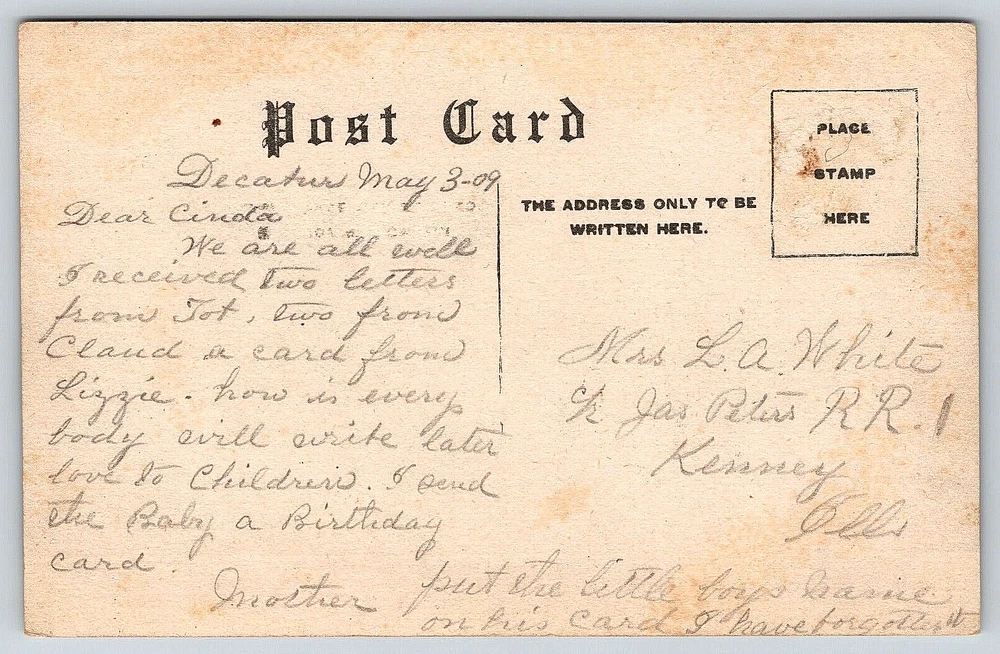 Post Card
PLACE
STAMP
HERE
THE ADDRESS ONLY TO BE
WRITTEN HERE.
Decatur May 3-09
Dear Cinda
We are all well
I received two letters
from Tot, two from
Claud a card from
Lizzie. how is every
body will write later
love to Children. I send
the Baby a Birthday
card.
Mother
put the little boys name
on his card I have forgotten it
Mrs L. A. White
c/o Jas Peters R R. 1
Kenney
Ills